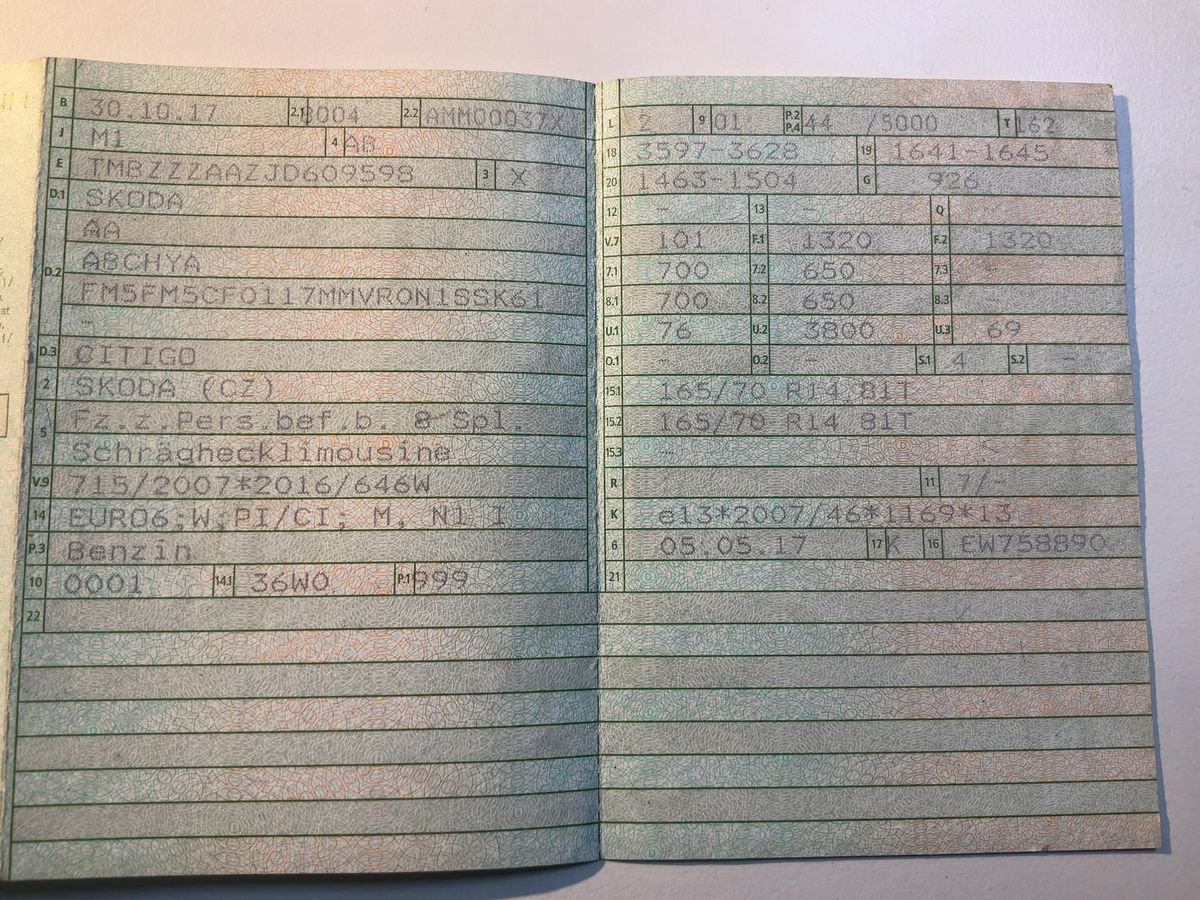 B 30.10.17 2.1 8004 2.2 AMM00037X
J M1 4 AB
E TMBZZZAAZJD609598 3 X
D.1 SKODA
AA
D.2 ABCHYA
FM5FM5CF0117MMVRON1SSK61
-
D.3 CITIGO
2 SKODA (CZ)
5 Fz.z.Pers.bef.b. 8 Spl.
Schräghecklimousine
V.9 715/2007*2016/646W
14 EURO6;W;PI/CI; M, N1 I
P.3 Benzin
10 0001 14.1 36W0 P.1 999
22
L 2 9 01 P.2 P.4 44 /5000 T 162
18 3597-3628 19 1641-1645
20 1463-1504 G 926
12 - 13 - Q -
V.7 101 F.1 1320 F.2 1320
7.1 700 7.2 650 7.3 -
8.1 700 8.2 650 8.3 -
U.1 76 U.2 3800 U.3 69
O.1 - O.2 - S.1 4 S.2 -
15.1 165/70 R14 81T
15.2 165/70 R14 81T
15.3 -
R 11 7/-
K e13*2007/46*1169*13
6 05.05.17 17 K 16 EW758890
21